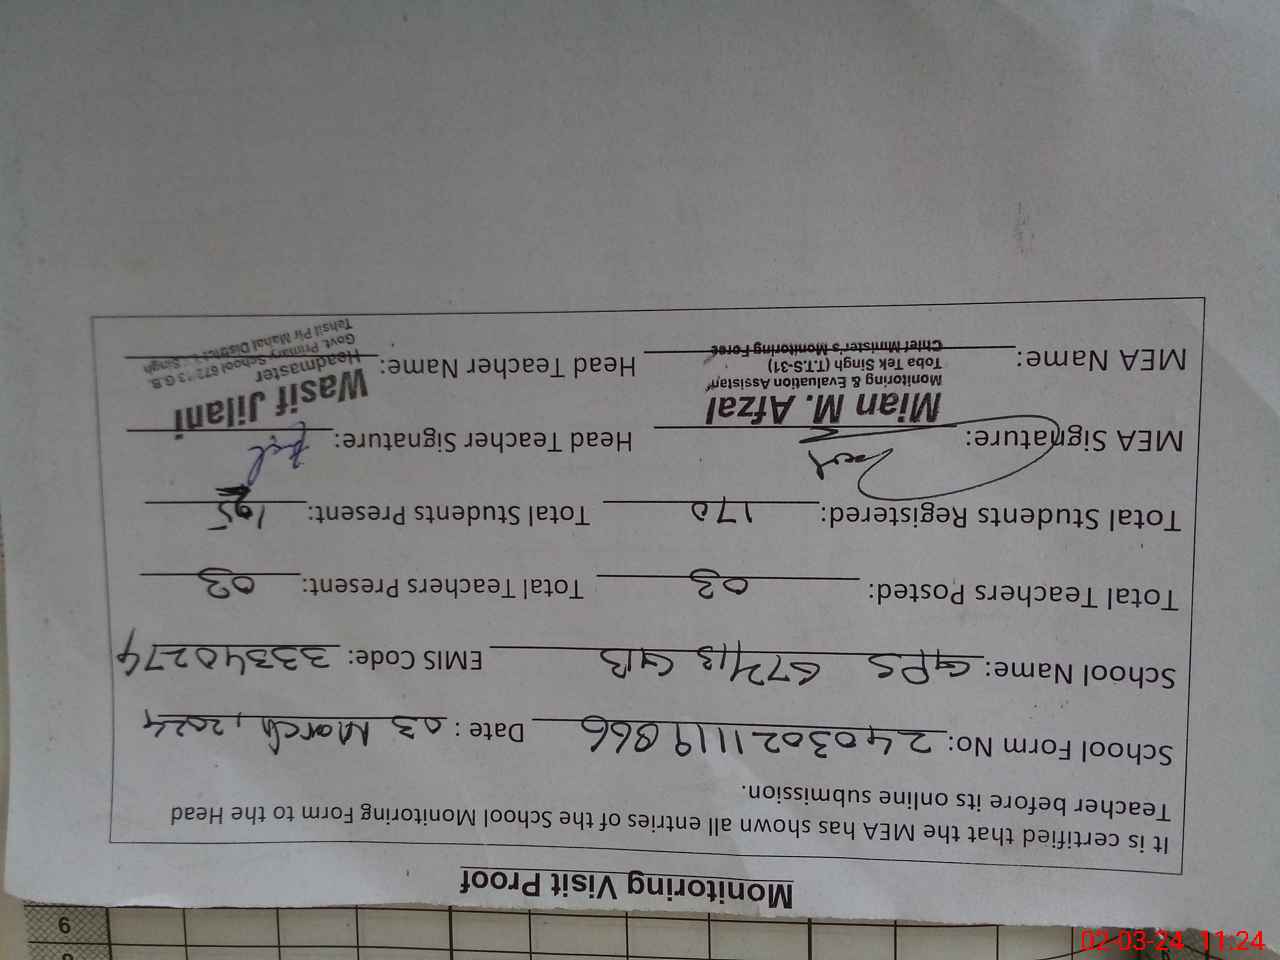 Monitoring Visit Proof
It is certified that the MEA has shown all entries of the School Monitoring Form to the Head
Teacher before its online submission.
School Form No: 2403021119866 Date : 03 March, 2024
School Name: GPS 672/13 GB EMIS Code: 33340274
Total Teachers Posted: 03 Total Teachers Present: 03
Total Students Registered: 170 Total Students Present: 125
MEA Signature: Head Teacher Signature:
Mian M. Afzal
Monitoring & Evaluation Assistant
Toba Tek Singh (T.T.S-31)
Chief Minister's Monitoring Force
Wasif Jilani
Headmaster
Govt. Primary School 672/13 G.B.
Tehsil Pir Mahal District Singh
MEA Name: Head Teacher Name:
9
02-03-24 11:24